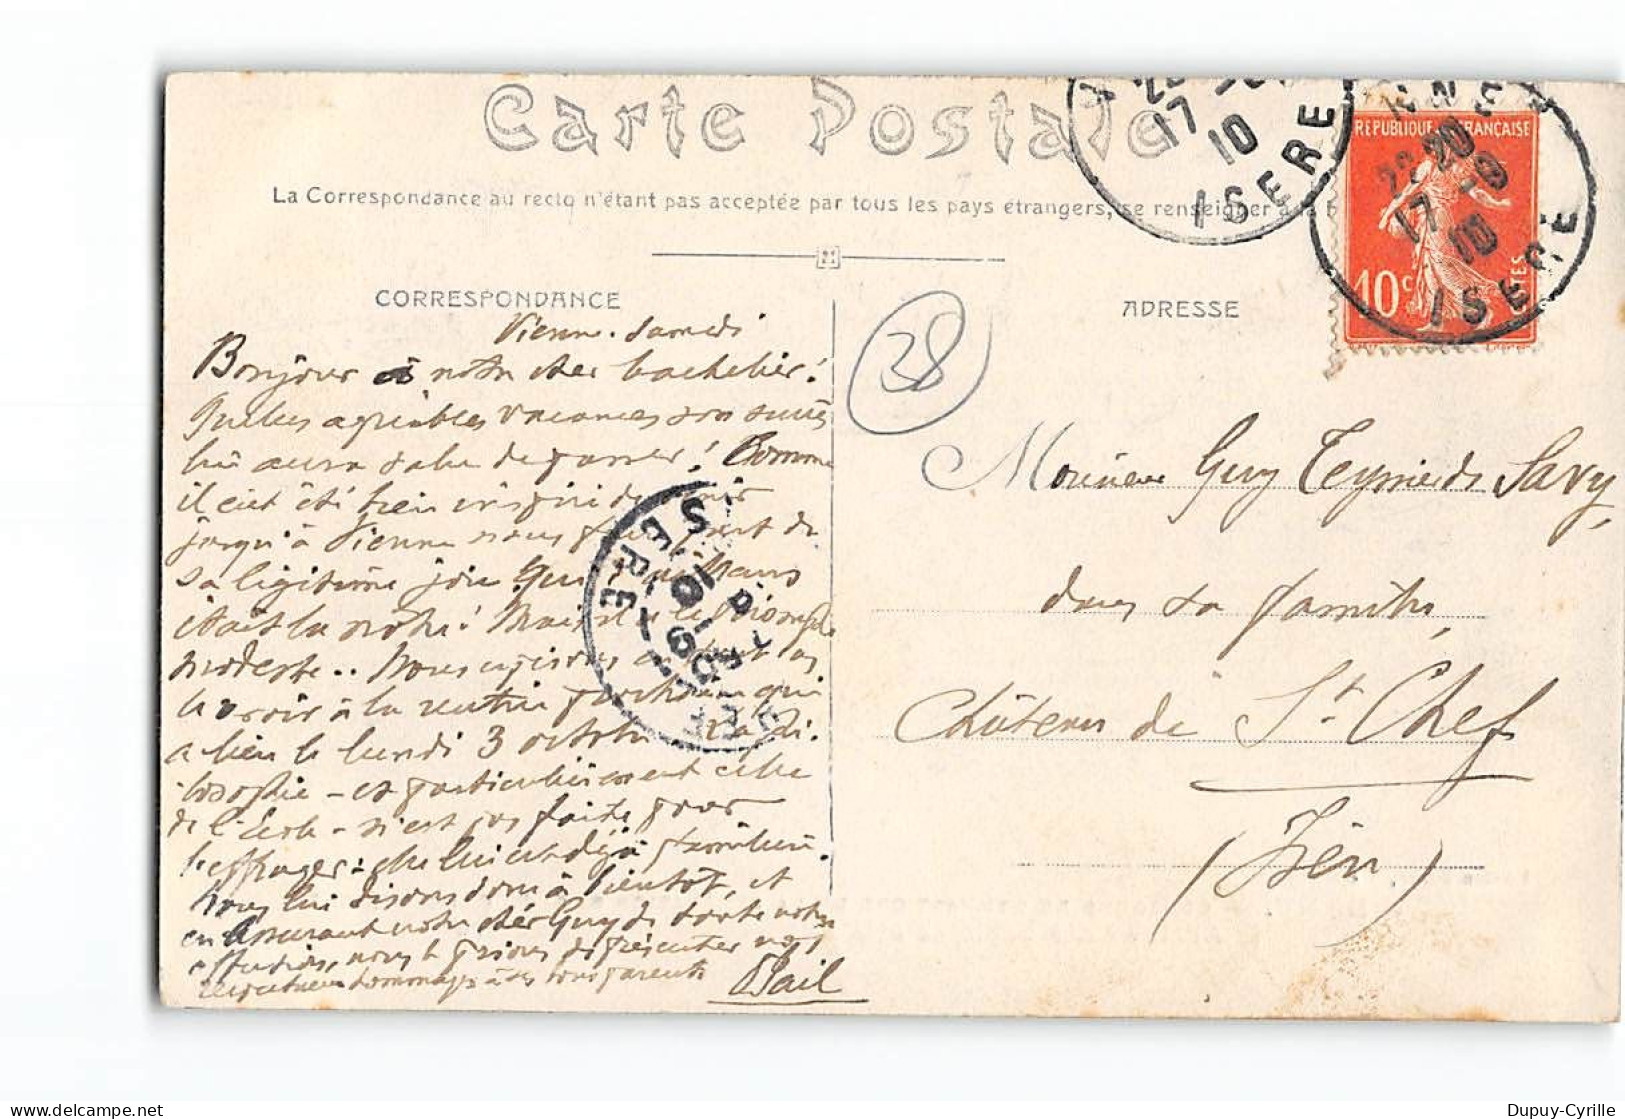 Carte Postale
La Correspondance au recto n'étant pas acceptée par tous les pays étrangers, se renseigner à la
CORRESPONDANCE
ADRESSE
REPUBLIQUE FRANÇAISE
10c
22 20
17 -9
10
ISERE
17
10
ISERE
38
Vienne. Samedi
Bonjour à notre cher bachelier!
Quelles agréables vacances son succès
lui aura valu de passer! Comme
il eût été bien inspiré de venir
jusqu'à Vienne nous faire part de
sa légitime joie
était la nôtre! Mais il a le triomphe
modeste.. Nous espérons au moins
le voir à la rentrée prochaine qui
a lieu le lundi 3 octobre. La phi-
losophie - et particulièrement celle
de l'École - n'est pas faite pour
l'effrayer: elle lui est déjà familière.
Nous lui disons donc à bientôt, et
en assurant notre cher Guy de toute notre
affection, nous le prions de présenter nos
respectueux hommages à ses bons parents
Monsieur Guy Teyssier de Savy,
dans sa famille,
Château de St. Chef
(Isère)
ISERE
10 -9
10
Dupuy-Cyrille